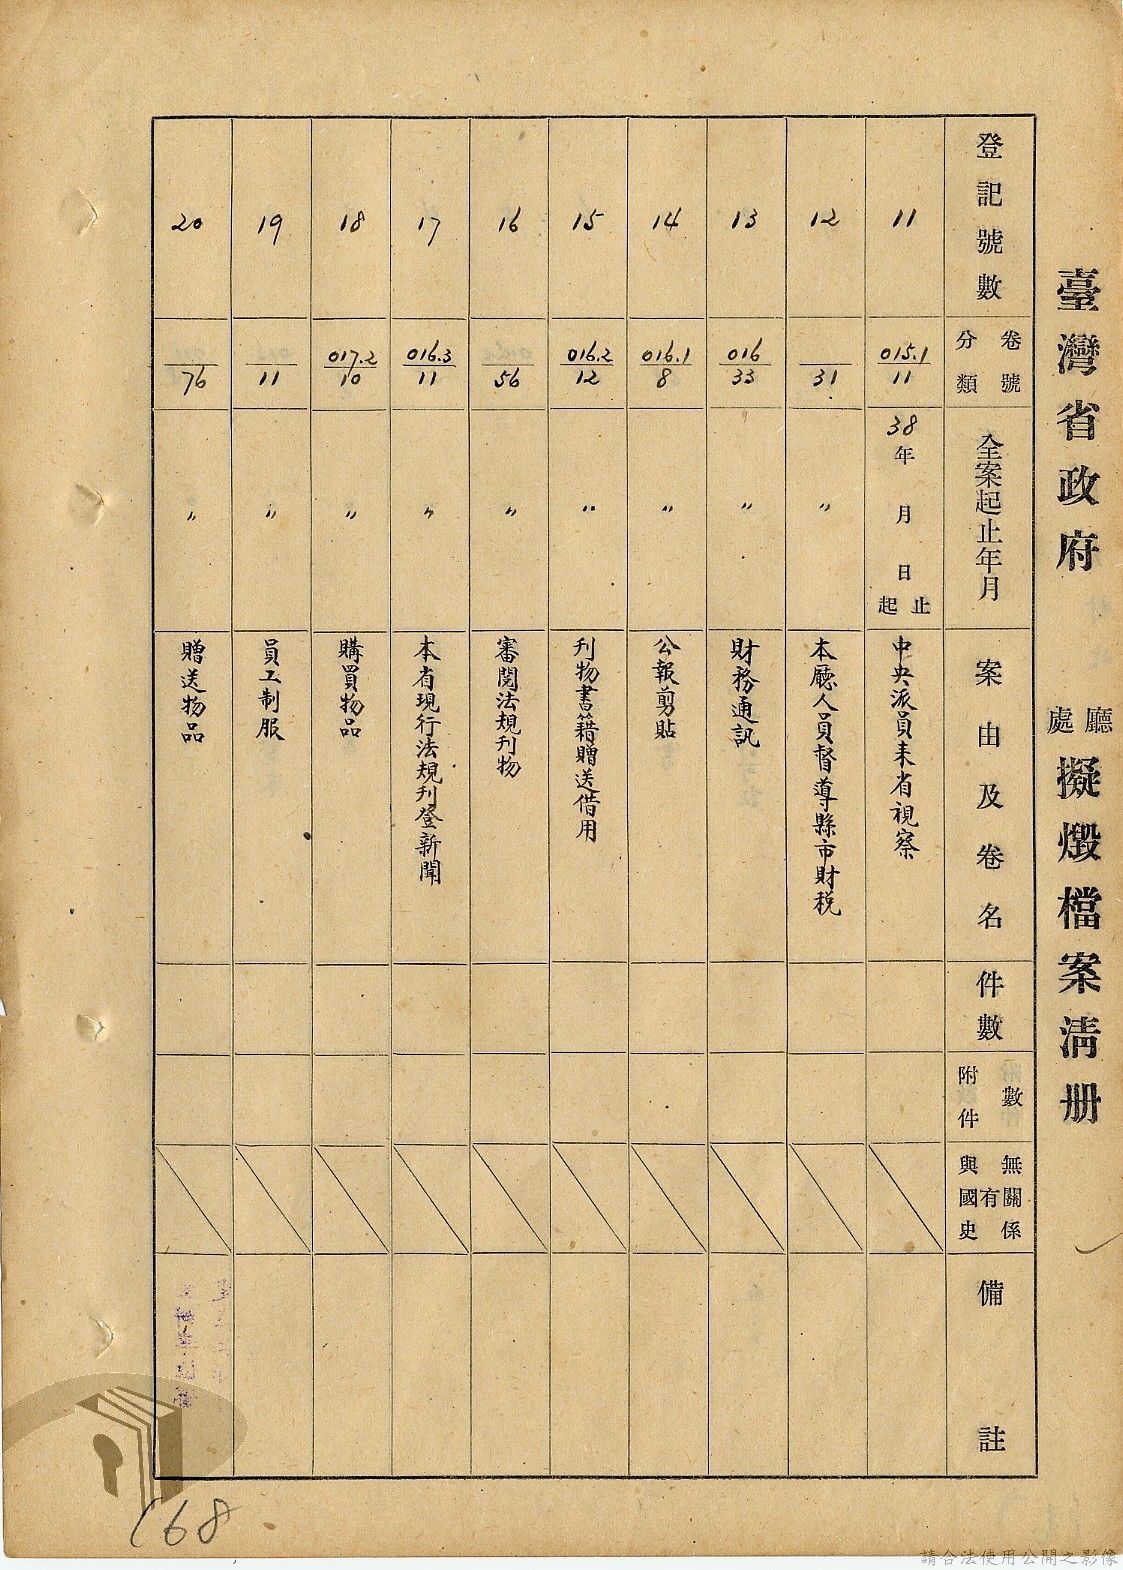 臺灣省政府廳處擬燬檔案清册
登記號數
卷號
分類
全案起止年月
案由及卷名
件數
附件數
與國史有無關係
備註
11
015.1
11
38年月日起止
中央派員來省視察
12
31
〃
本廳人員督導縣市財稅
13
016
33
〃
財務通訊
14
016.1
8
〃
公報剪貼
15
016.2
12
〃
刊物書籍贈送借用
16
56
〃
審閱法規刊物
17
016.3
11
〃
本省現行法規刊登新聞
18
017.2
10
〃
購買物品
19
11
〃
員工制服
20
76
〃
贈送物品
168
請合法使用公開之影像